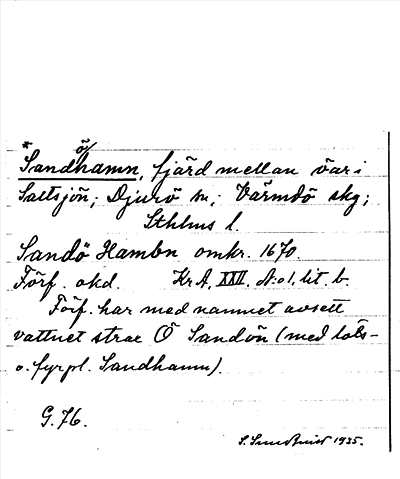 *Sandöhamn, fjärd mellan öar i
Saltsjön; Djurö sn; Värmdö skg;
Sthlms l.
Sandö Hambn omkr. 1670.
Förf. okd. Kr A. XXII. N:o 1. lit. b.
Förf. har med namnet avsett
vattnet strax Ö Sandön (med lots-
o. fyrpl. Sandhamn).
G. 76.
1935.